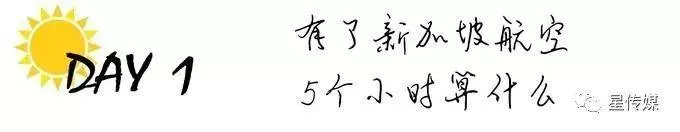 DAY 1
有了新加坡航空
5个小时算什么
星传媒